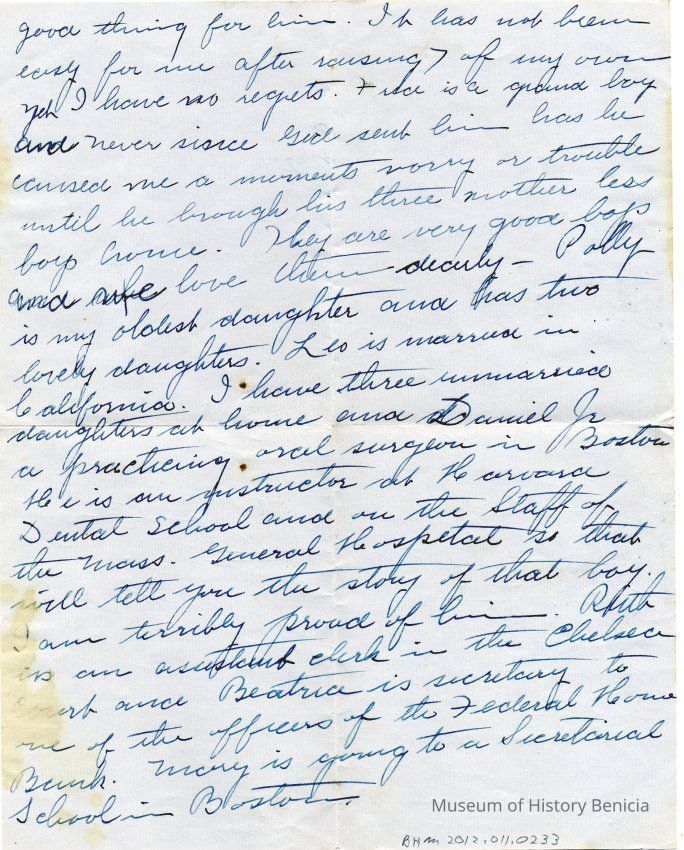 good thing for him. It has not been
easy for me after raising 7 of my own
yet I have no regrets. is a grand boy
and never sisnce God sent him has he
caused me a moments worry or trouble
until he brough his three mother less
boys home. They are very good boys
and we love them dearly - Polly
is my oldest daughter and has two
lovely daughters. Leo is married in
California. I have three unmarried
daughters at home and Daniel Jr
a practicing oral surgeon in Boston
He is an instructor at Harvard
Dental School and on the Staff of
the Mass. General Hospetal so that
will tell you the story of that boy.
I am terribly proud of him. Ruth
is an assistant clerk in the Chelsea
court and Beatrice is secretary to
one of the officers of the Federal Home
Bank. Mary is going to a Secretarial
School in Boston.
Museum of History Benicia
BHM 2012.011.0233